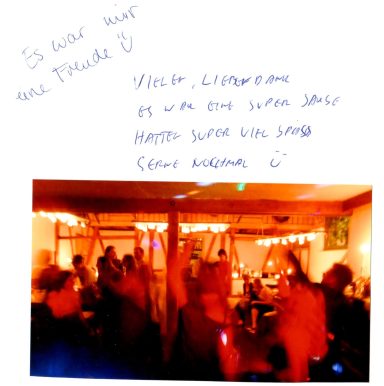 Es war mir
eine Freude Ü
VIELEN, LIEBEN DANK
ES WAR EINE SUPER SAUSE
HATTEN SUPER VIEL SPASS
GERNE NOCHMAL Ü